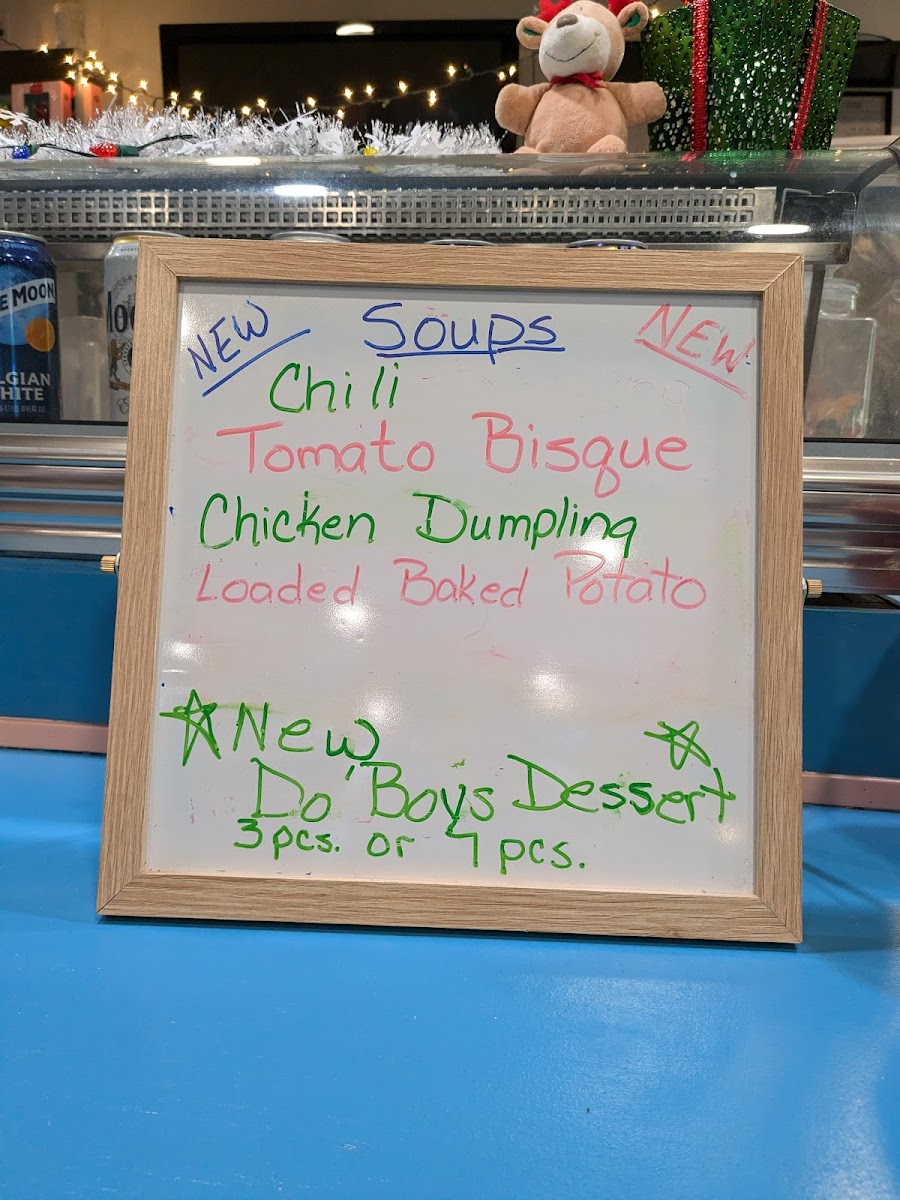 NEW Soups NEW
Chili
Tomato Bisque
Chicken Dumpling
Loaded Baked Potato
New
Do'Boys Dessert
3 pcs. or 7 pcs.
E MOON
LGIAN
HITE